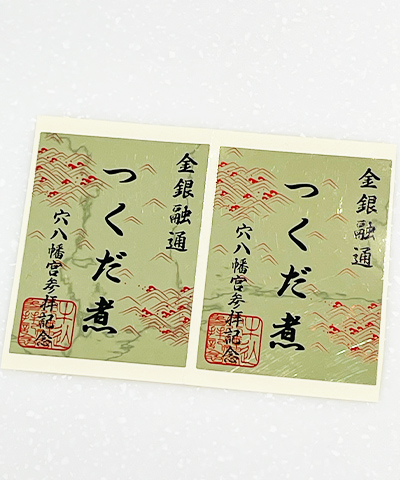 金銀融通
つくだ煮
穴八幡宮参拝記念
金銀融通
つくだ煮
穴八幡宮参拝記念